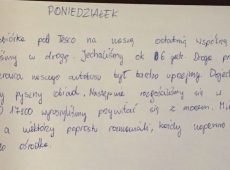 PONIEDZIAŁEK
zbiórka pod Tesco na naszą ostatnią wspólną
w drogę. Jechaliśmy ok 6 godz. Droga
naszego autokaru był bardzo uprzejmy.
pyszny obiad. Następnie rozgościliśmy się w
O 17:00 wyruszyliśmy przywitać się z morzem.
a niektórzy poprostu rozmawiali, każdy
do ośrodka.